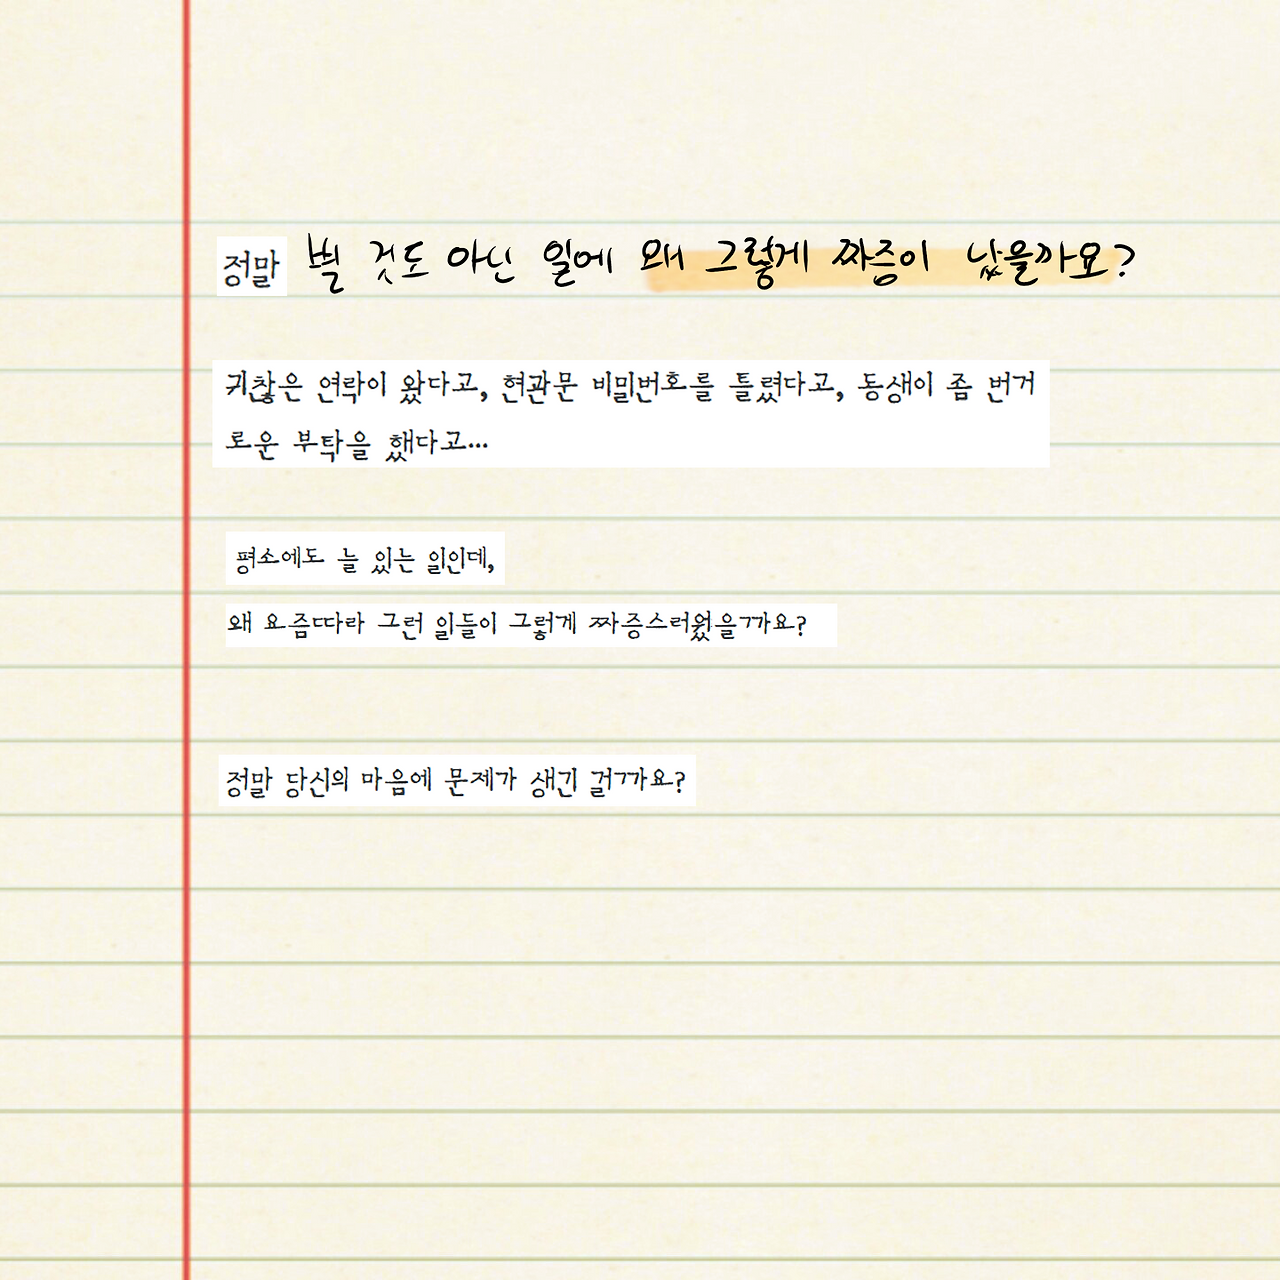 정말 별 것도 아닌 일에 왜 그렇게 짜증이 났을까요?
귀찮은 연락이 왔다고, 현관문 비밀번호를 틀렸다고, 동생이 좀 번거
로운 부탁을 했다고...
평소에도 늘 있는 일인데,
왜 요즘따라 그런 일들이 그렇게 짜증스러웠을까요?
정말 당신의 마음에 문제가 생긴 걸까요?